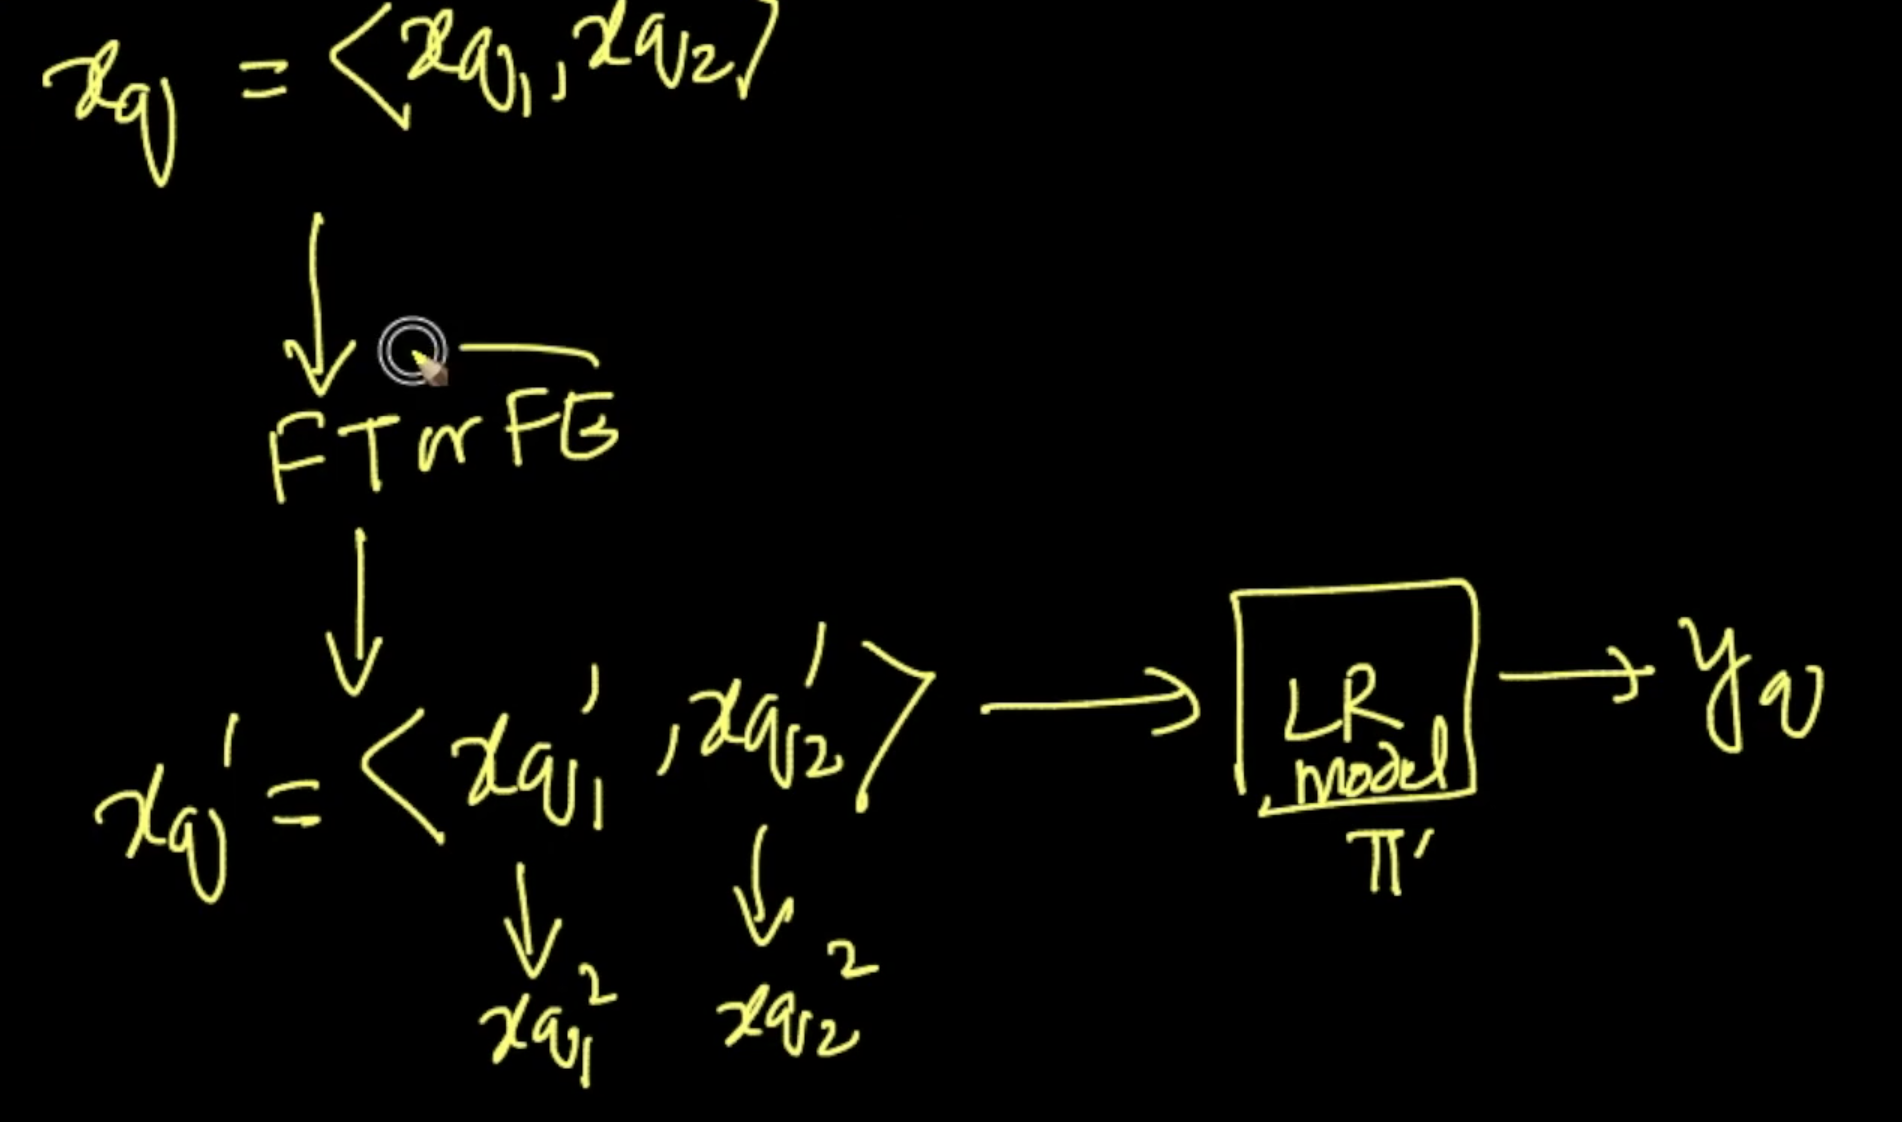 xq = <xq₁, xq₂>
FT or FE
xq' = <xq₁', xq₂'> → LR model → yq
π'
xq₁² xq₂²